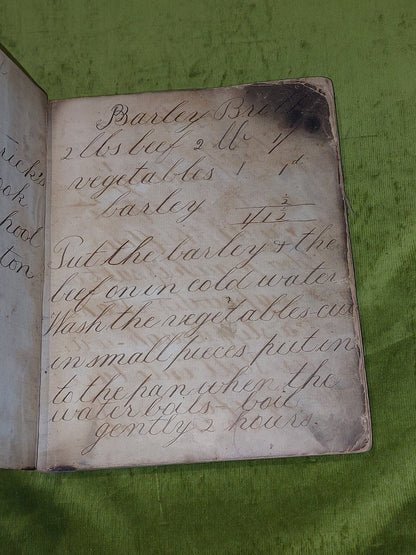 rick's
ook
had
ton
Barley Broth
2 lbs beef 2 lb 1/
vegetables 1 1d
barley ½
1/1½
Put the barley & the
beef on in cold water
Wash the vegetables cut
in small pieces put in
to the pan when the
water boils boil
gently 2 hours.